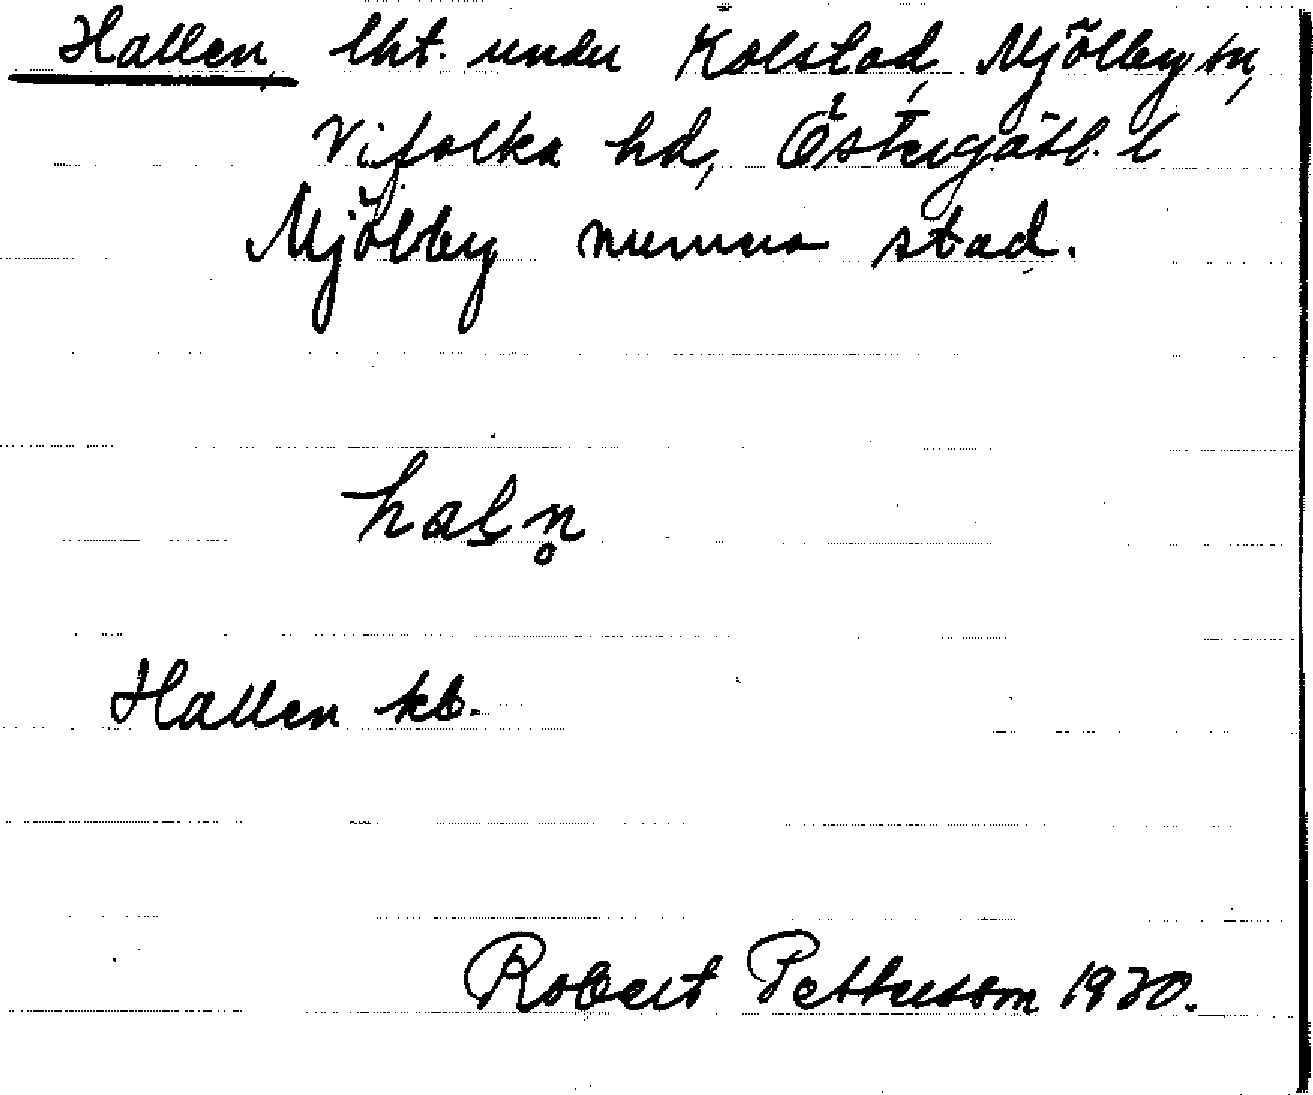 Hallen, lht. under Kolstad, Mjölby sn,
Vifolka hd, Östergötl. l
Mjölby numera stad.
hal̲n̥
Hallen kb.
Robert Pettersson 1930.